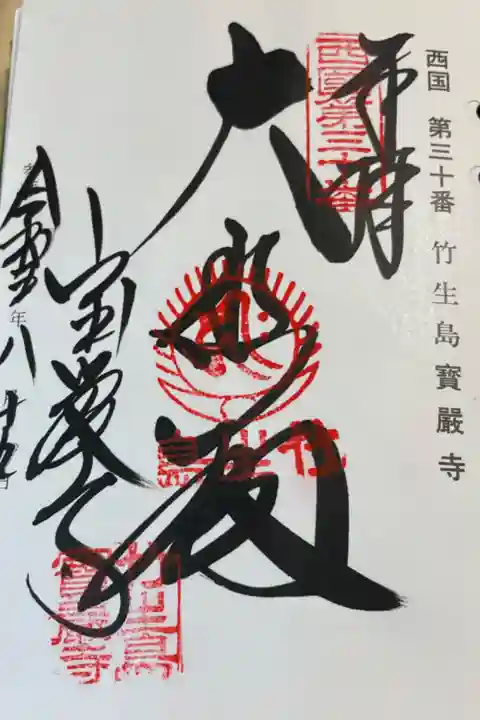 西国 第三十番 竹生島寶厳寺
奉拝
西国第三十番
大悲殿
竹生島
宝厳寺
年
竹生島
寶厳寺